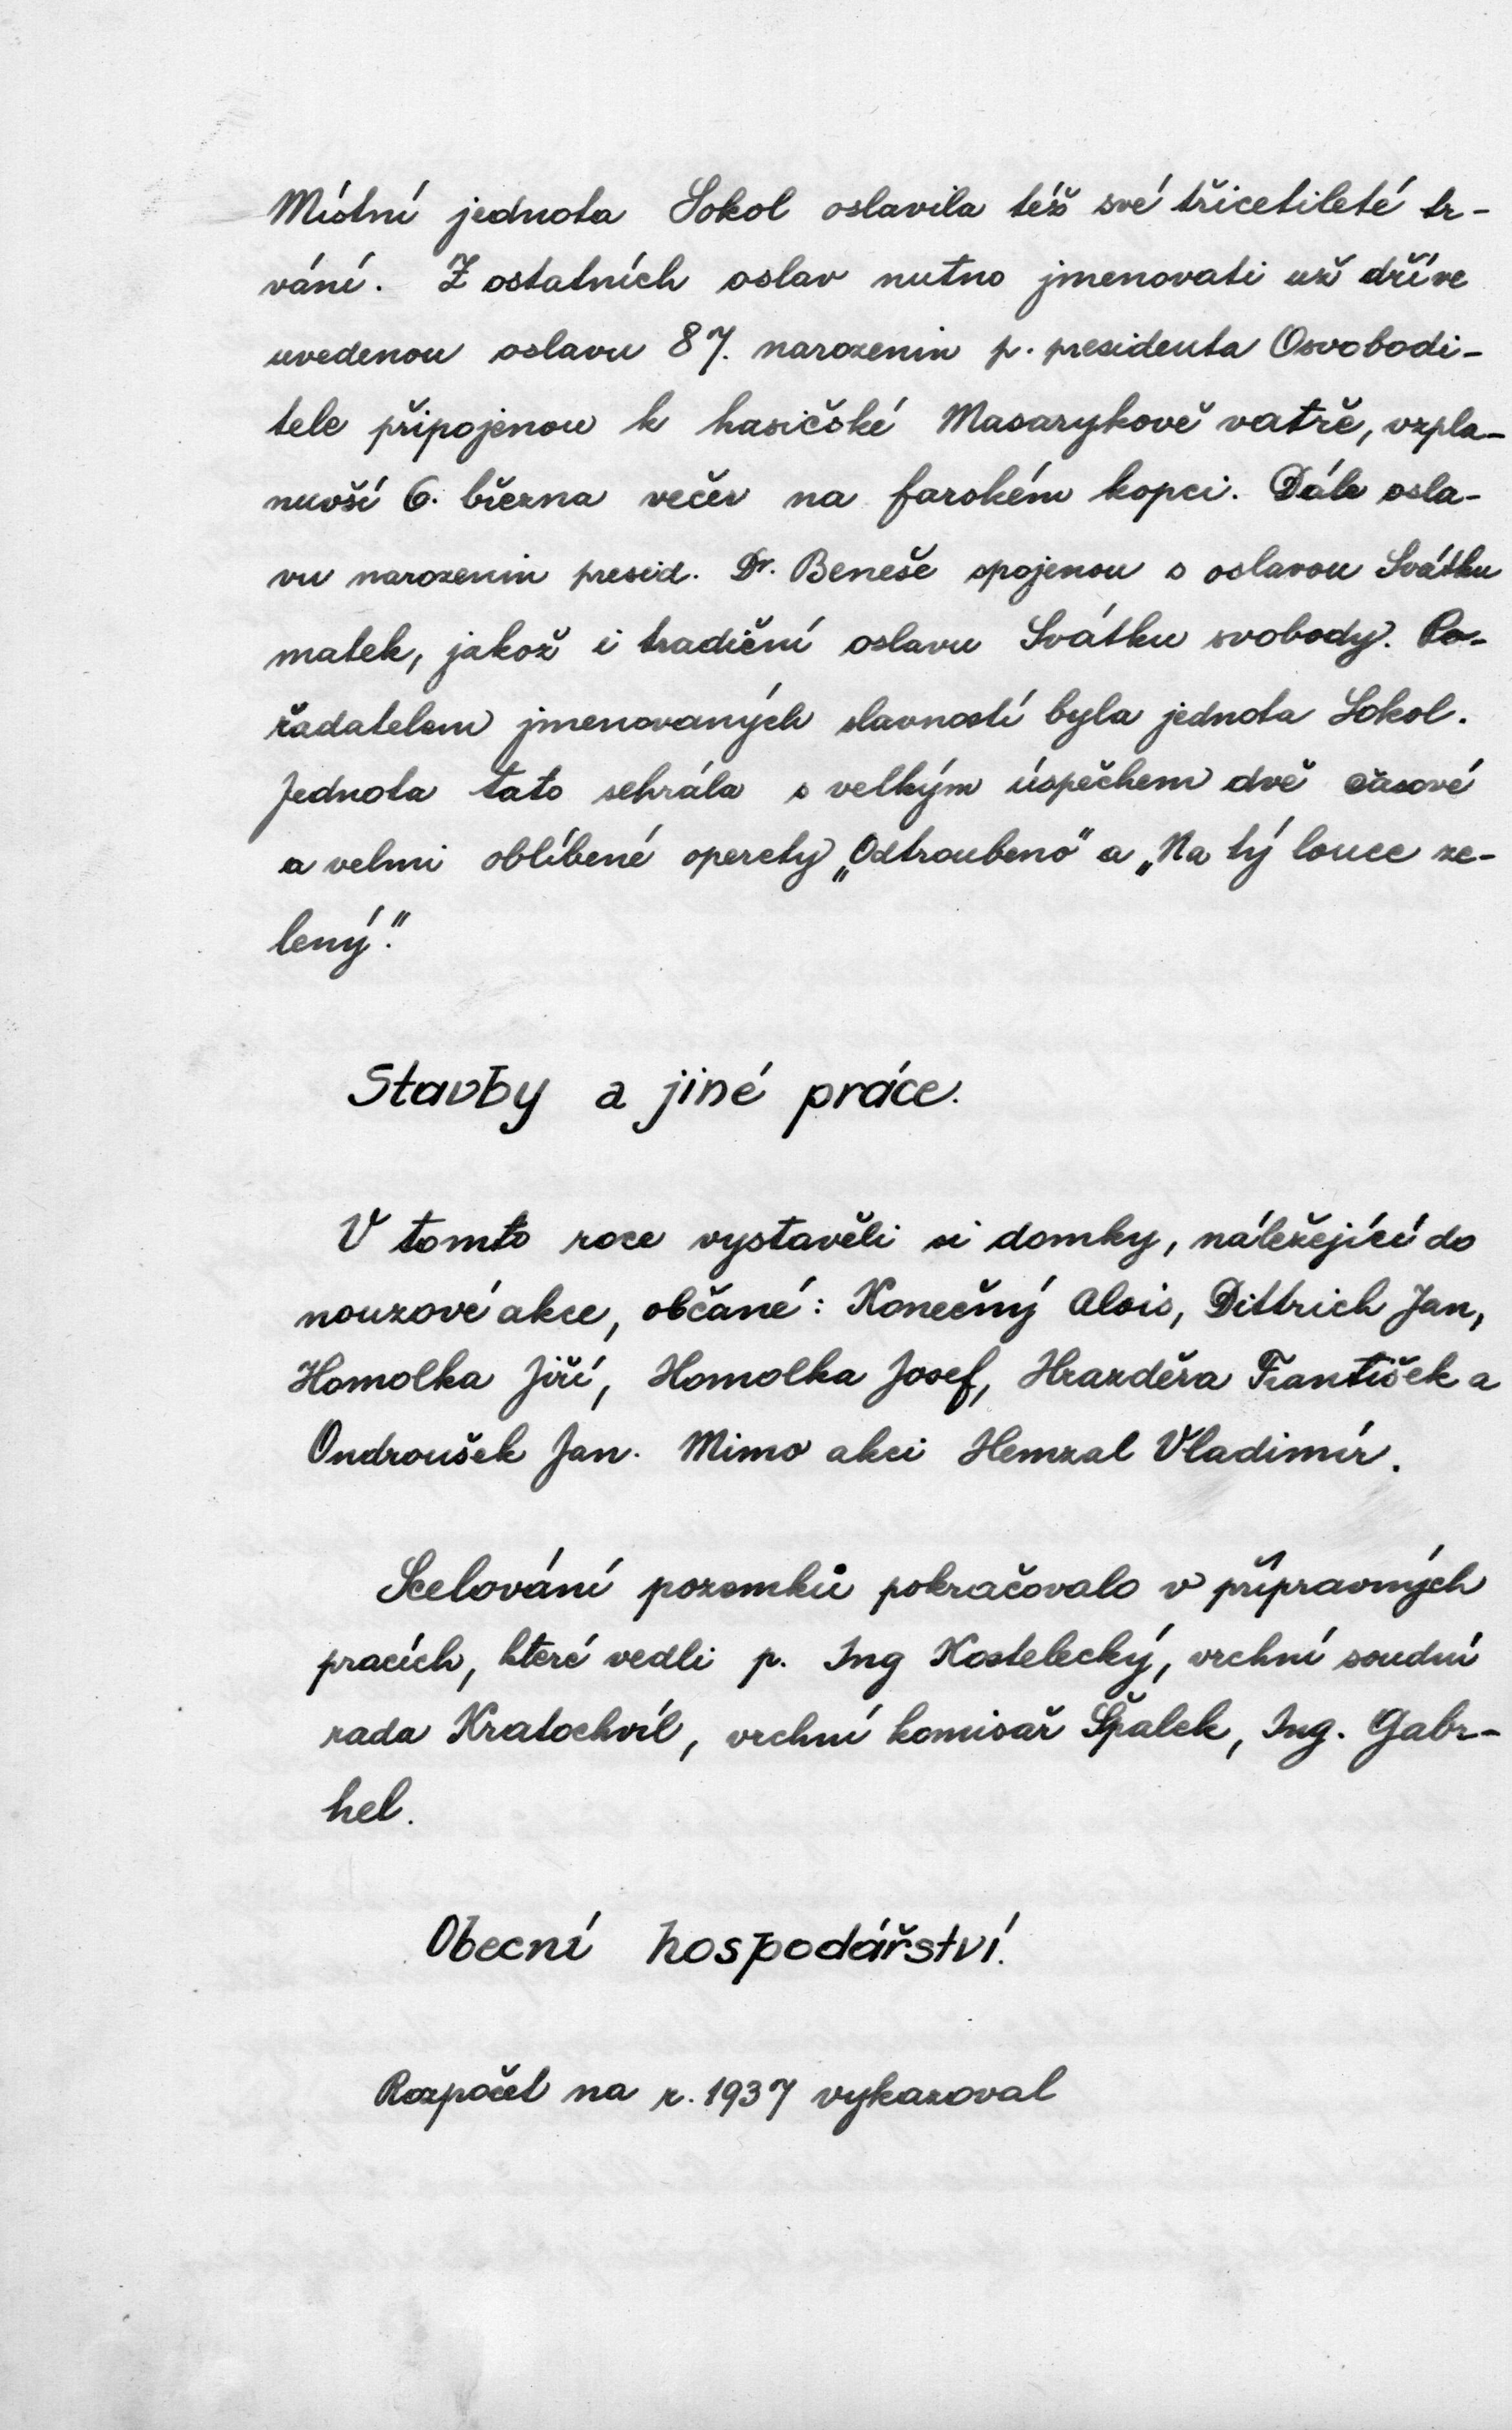 Místní jednota Sokol oslavila též své třicetileté tr-
vání. Z ostatních oslav nutno jmenovati už dříve
uvedenou oslavu 87. narozenin p. presidenta Osvobodi-
tele připojenou k hasičské Masarykově vatře, vzpla-
nuvší 6. března večer na farském kopci. Dále osla-
vu narozenin presid. Dr. Beneše spojenou s oslavou Svátku
matek, jakož i tradiční oslavu Svátku svobody. Po-
řadatelem jmenovaných slavností byla jednota Sokol.
Jednota tato sehrála s velkým úspěchem dvě časové
a velmi oblíbené operety „Odtroubeno" a „Na tý louce ze-
lený."
Stavby a jiné práce.
V tomto roce vystavěli si domky, náležející do
nouzové akce, občané: Konečný Alois, Dittrich Jan,
Homolka Jiří, Homolka Josef, Hrazděra František a
Ondroušek Jan. Mimo akci Hemzal Vladimír.
Scelování pozemků pokračovalo v přípravných
pracích, které vedli p. Ing Kostelecký, vrchní soudní
rada Kratochvíl, vrchní komisař Špalek, Ing. Gabr-
hel.
Obecní hospodářství.
Rozpočet na r. 1937 vykazoval